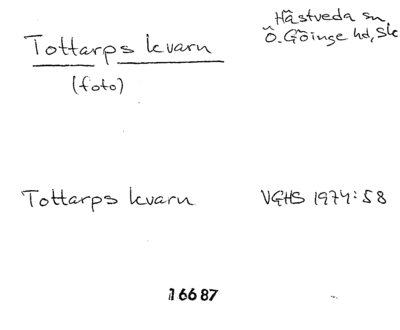 Hästveda sn
Ö. Göinge hd, Sk
Tottarps kvarn
(foto)
Tottarps kvarn VGHS 1974:58
16687